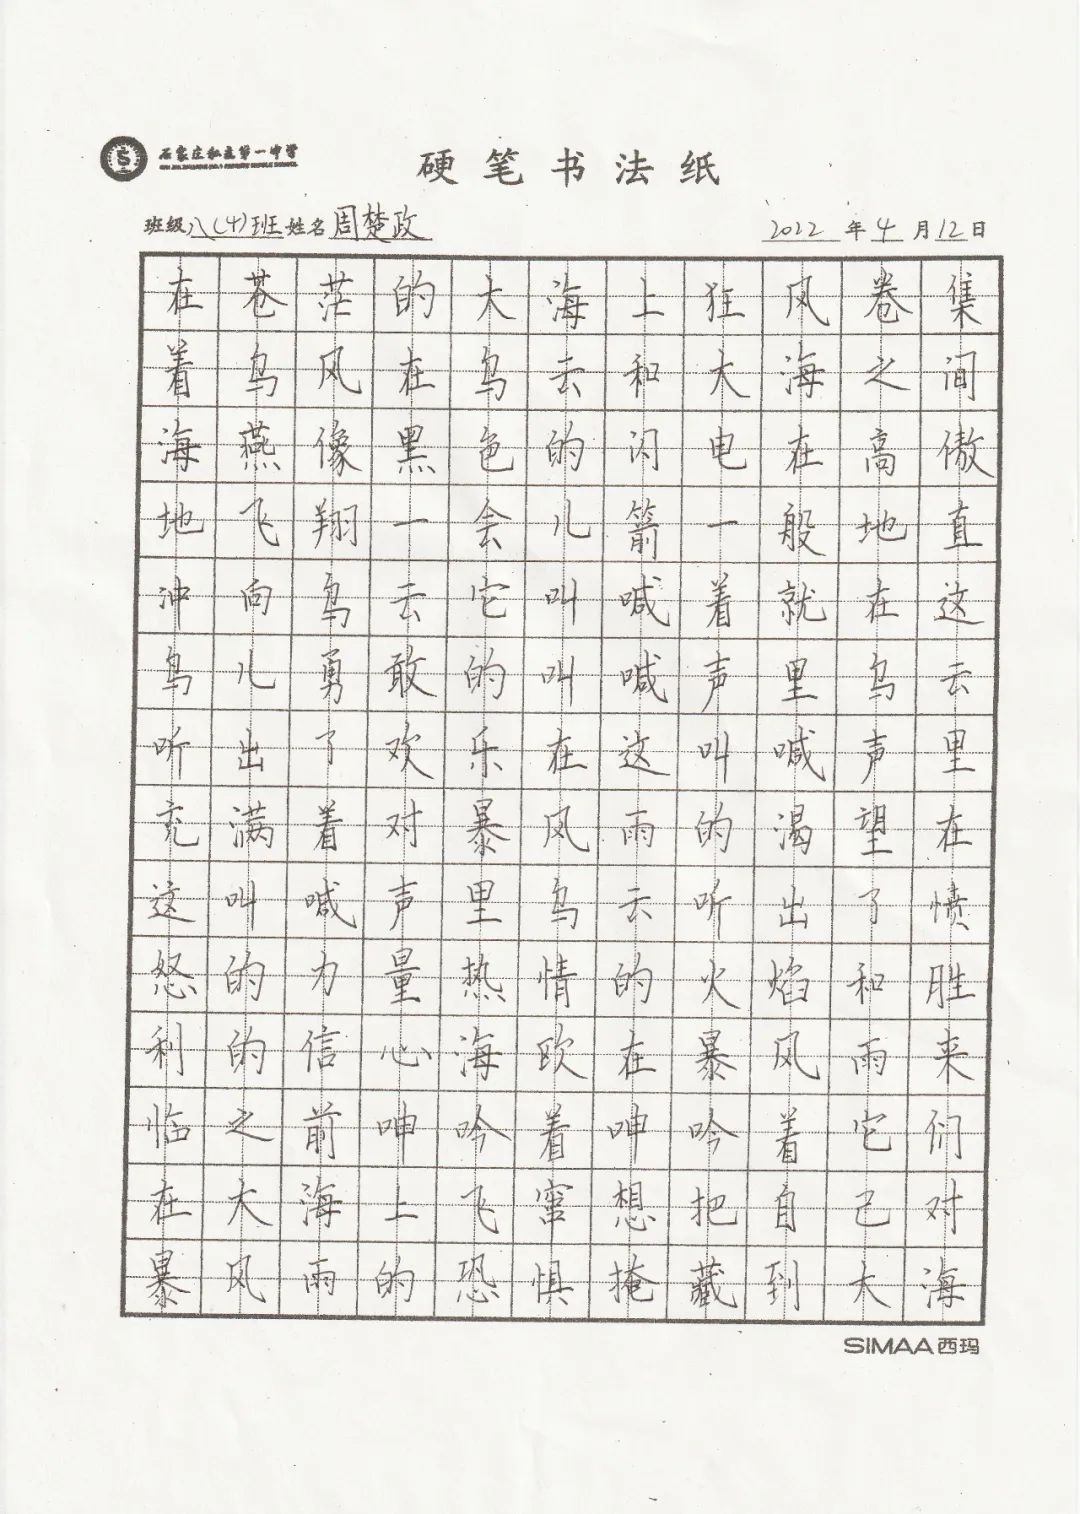 石家庄私立第一中学
硬笔书法纸
班级八(4)班姓名周楚政 2022年4月12日
在苍茫的大海上狂风卷集
着乌风在乌云和大海之间
海燕像黑色的闪电在高傲
地飞翔一会儿箭一般地直
冲向乌云它叫喊着就在这
鸟儿勇敢的叫喊声里乌云
听出了欢乐在这叫喊声里
充满着对暴风雨的渴望在
这叫喊声里乌云听出了愤
怒的力量热情的火焰和胜
利的信心海欧在暴风雨来
临之前呻吟着呻吟着它们
在大海上飞窜想把自己对
暴风雨的恐惧掩藏到大海
SIMAA西玛